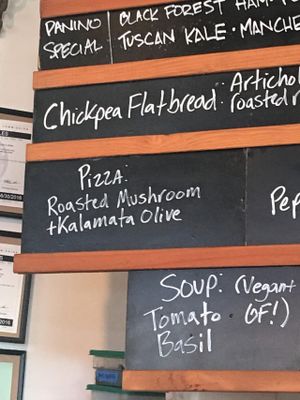 PANINO SPECIAL
BLACK FOREST HAM
TUSCAN KALE · MANCHE
Chickpea Flatbread: Artichol
roasted r
Pizza:
Roasted Mushroom
+Kalamata Olive
Pep
Soup: (Vegan+
Tomato GF!)
Basil
2016
2016